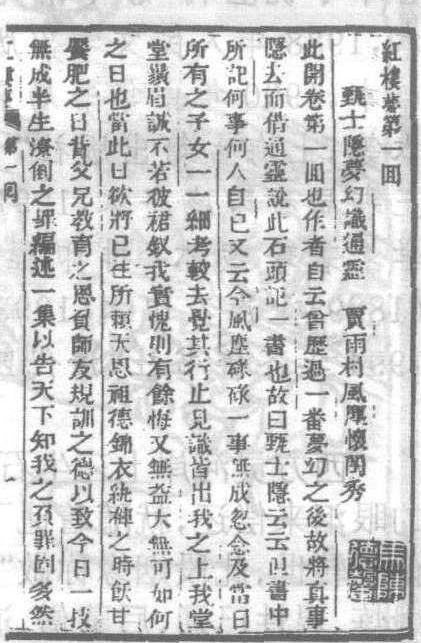 紅樓夢第一回
甄士隱夢幻識通靈　賈雨村風塵懷閨秀
此開卷第一回也作者自云曾歷過一番夢幻之後故將真事
隱去而借通靈說此石頭記一書也故曰甄士隱云云但書中
所記何事何人自己又云今風塵碌碌一事無成忽念及當日
所有之子女一一細考較去覺其行止見識皆出我之上我堂
堂鬚眉誠不若彼裙釵我實愧則有餘悔又無益大無可如何
之日也當此日欲將已往所賴天恩祖德錦衣紈絝之時飲甘
饜肥之日背父兄教育之恩負師友規訓之德以致今日一技
無成半生潦倒之罪編述一集以告天下知我之負罪固多然
第一回
一